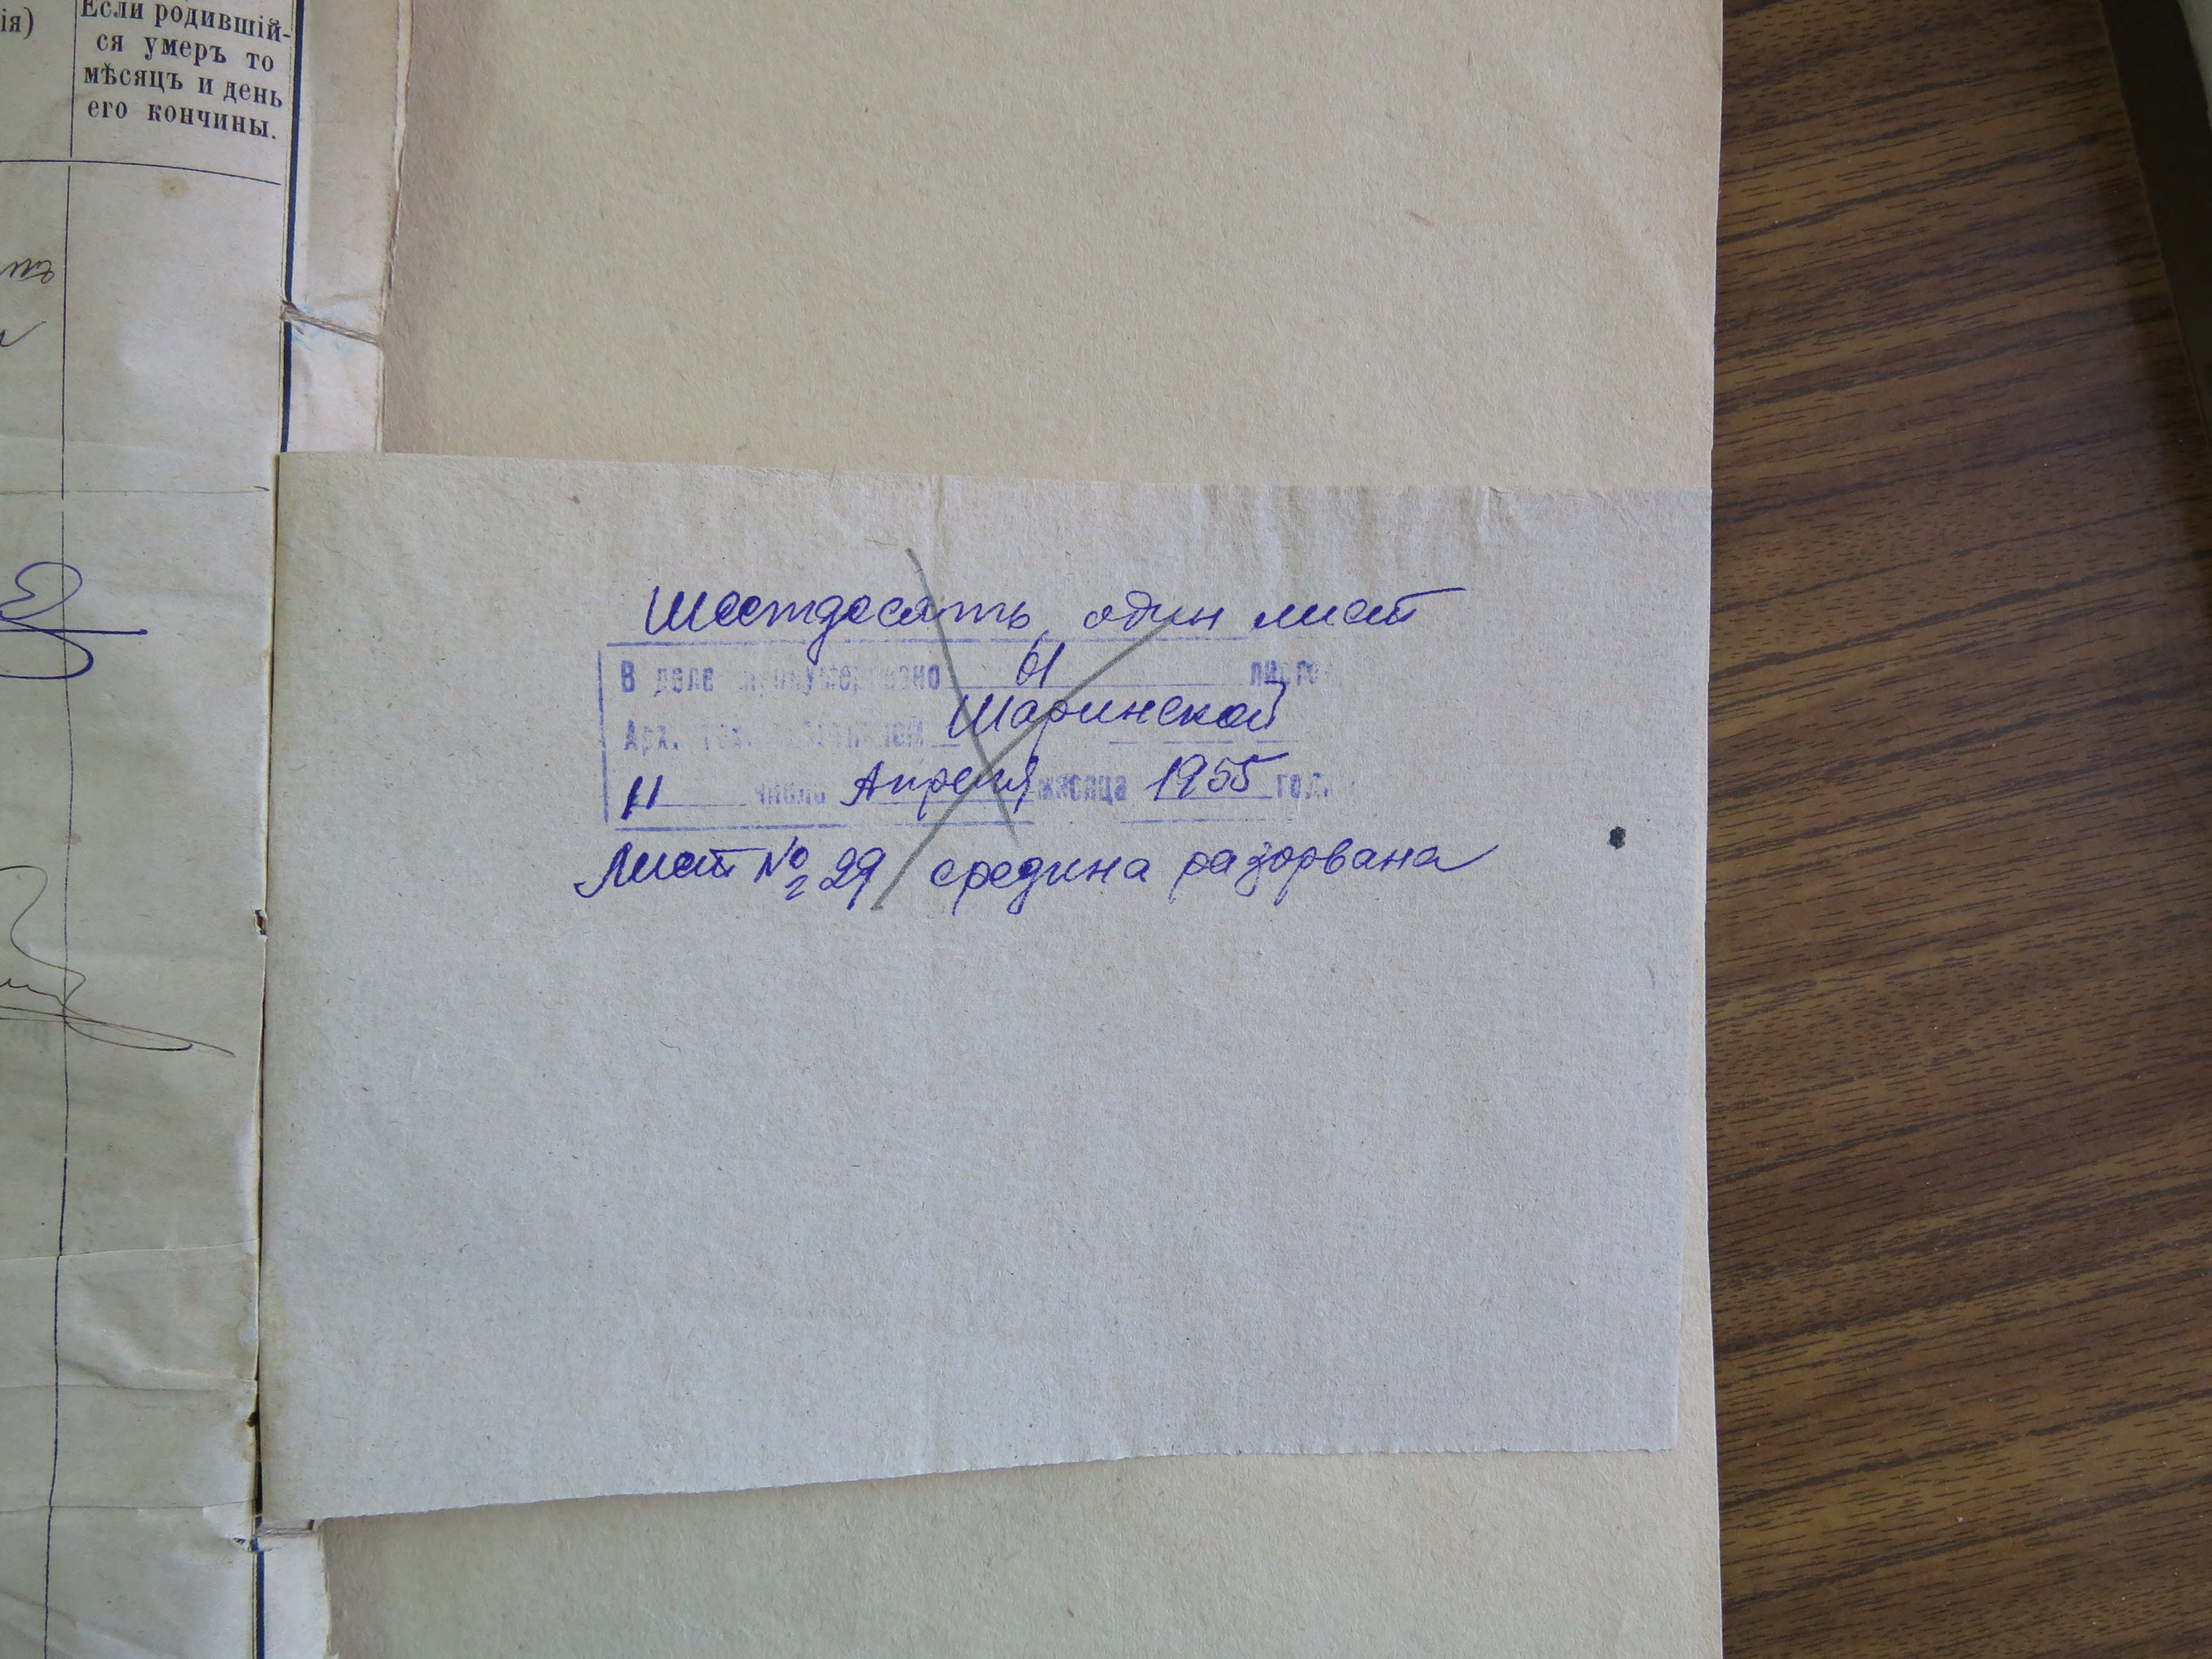 ія)
Если родившій-
ся умеръ то
мѣсяцъ и день
его кончины.
Шестдесять один лист
В деле пронумеровано 61 листов
Арх. тех. Шаринской
11 число Апреля месяца 1955 года
Лист № 29 средина разорвана